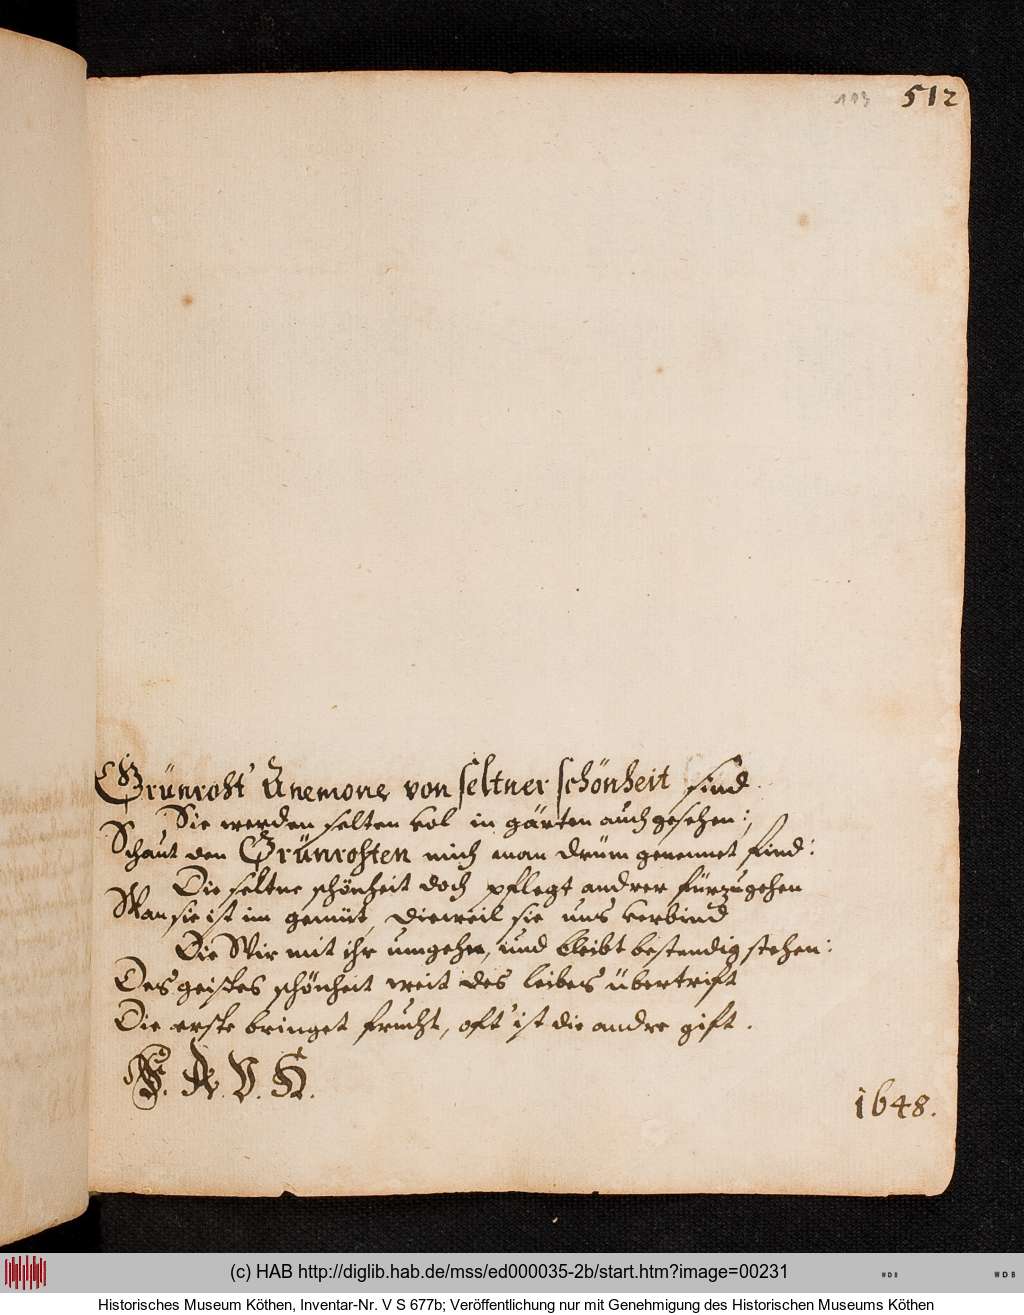 193 512
Grünroht' Anemone von seltner schönheit sind
Sie werden selten vol in gärten auch gesehen:,
Schaut den Grünrohten mich man drüm genennet find:
Die seltne schönheit doch pflegt andrer fürzugehen
Wan sie ist im gemüt, dieweil sie uns verbind
Die Wir mit ihr umgehn, und bleibt bestendig stehen:
Des geistes schönheit weit des leibes übertrift
Die erste bringet frucht, oft' ist die andre gift.
A. V. H.
1648.
(c) HAB http://diglib.hab.de/mss/ed000035-2b/start.htm?image=00231
WDB
WDB
Historisches Museum Köthen, Inventar-Nr. V S 677b; Veröffentlichung nur mit Genehmigung des Historischen Museums Köthen